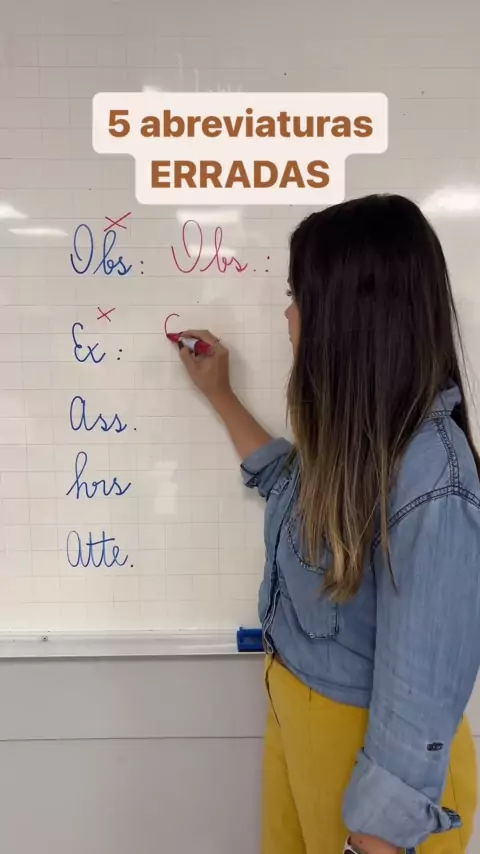 5 abreviaturas
ERRADAS
Obs: Obs.:
Ex:
Ass.
hrs
Atte.